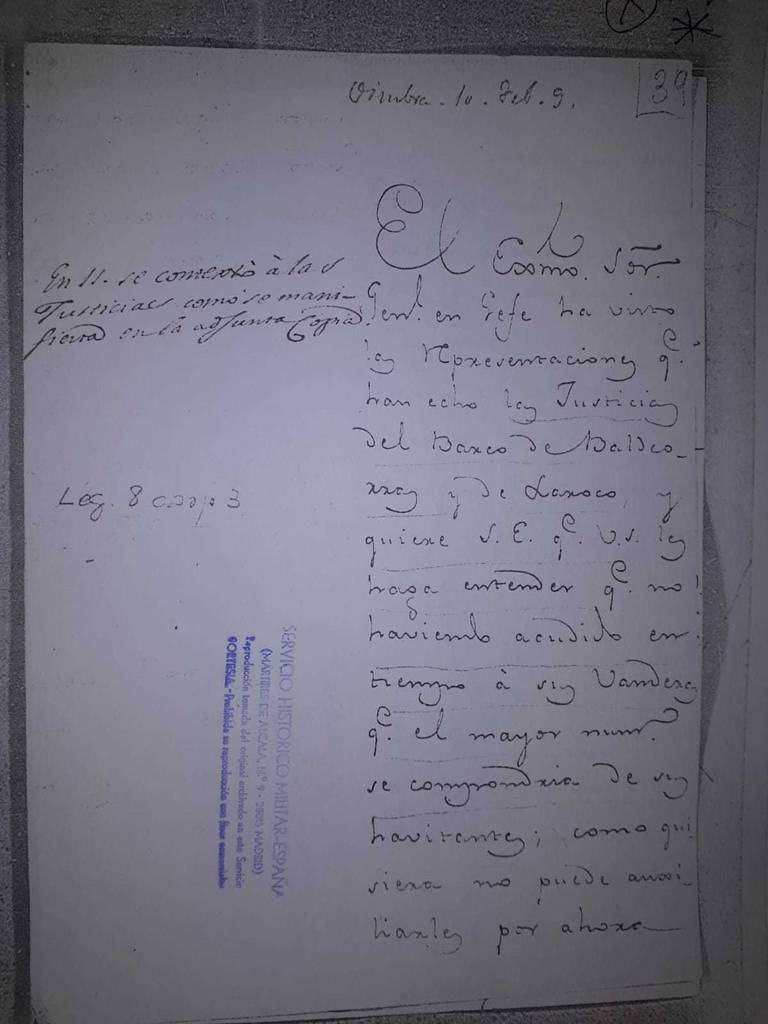 39
Oimbra. 10. Feb. 9.
El Exmo. Sõr.
Genl. en Gefe ha visto
las Representaciones q.e
han echo las Justicias
del Barco de Baldeo-
rras y de Laroco, y
quiere S. E. q.e V.S. les
haga entender q.e no
haviendo acudido en
tiempo à sus Vanderas
q.e el mayor num.o
se compondria de sus
havitantes; como qui
siera no puede auxi-
liarles por ahora
En 11. se contextò à las
Justicias como se mani-
fiesta en la adjunta Copia.
Leg. 8 carp 3
SERVICIO HISTORICO MILITAR-ESPAÑA
(MARTIRES DE ALCALA, N.º 9 - 28015 MADRID)
Reproducción tomada del original archivado en este Servicio
CORTESIA - Prohibida su reproducción con fines comerciales